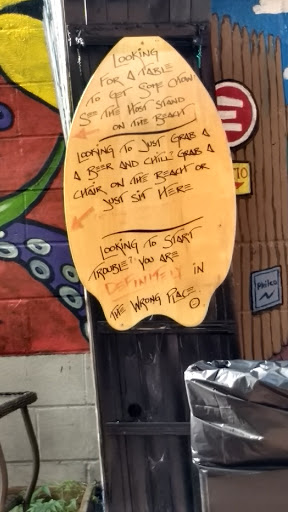 LOOKING
FOR A TABLE
TO GET SOME CHOW
SEE THE HOST STAND
ON THE BEACH
LOOKING TO JUST GRAB A
A BEER AND CHILL? GRAB A
CHAIR ON THE BEACH OR
JUST SIT HERE
LOOKING TO START
TROUBLE? YOU ARE
DEFINITELY IN
THE WRONG PLACE.